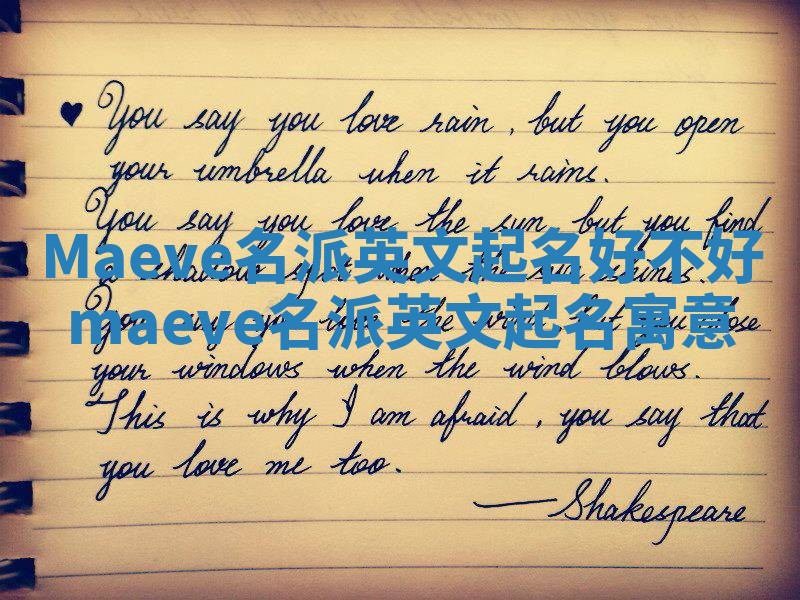 ♥ You say you love rain, but you open
your umbrella when it rains.
You say you love the sun, but you find
a shadow spot when the sun shines.
Maeve名派英文起名好不好
You say you love the wind, but you close
maeve名派英文起名寓意
your windows when the wind blows.
This is why I am afraid, you say that
you love me too.
—Shakespeare